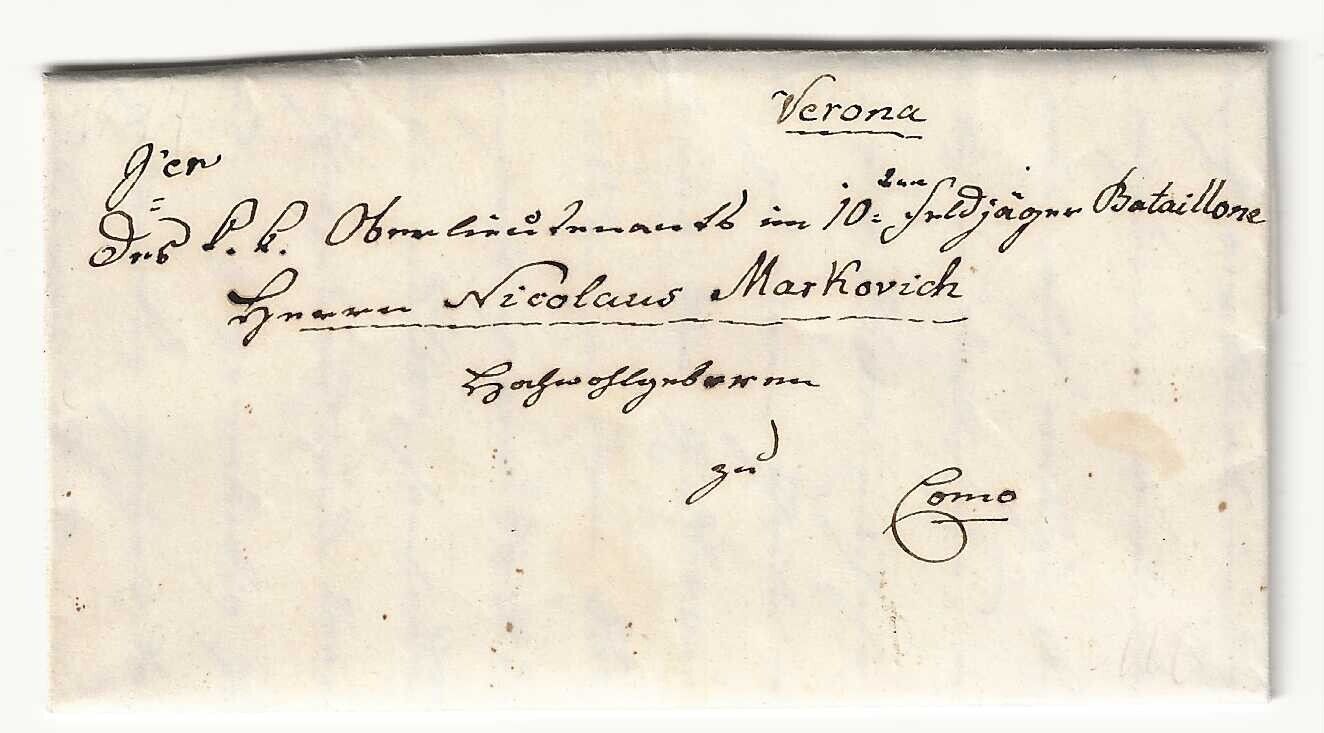 Verona
Des k. k. Oberlieutenants im 10= ten Feldjäger Bataillone
Herrn Nicolaus Markovich
Hochwohlgeboren
zu
Como